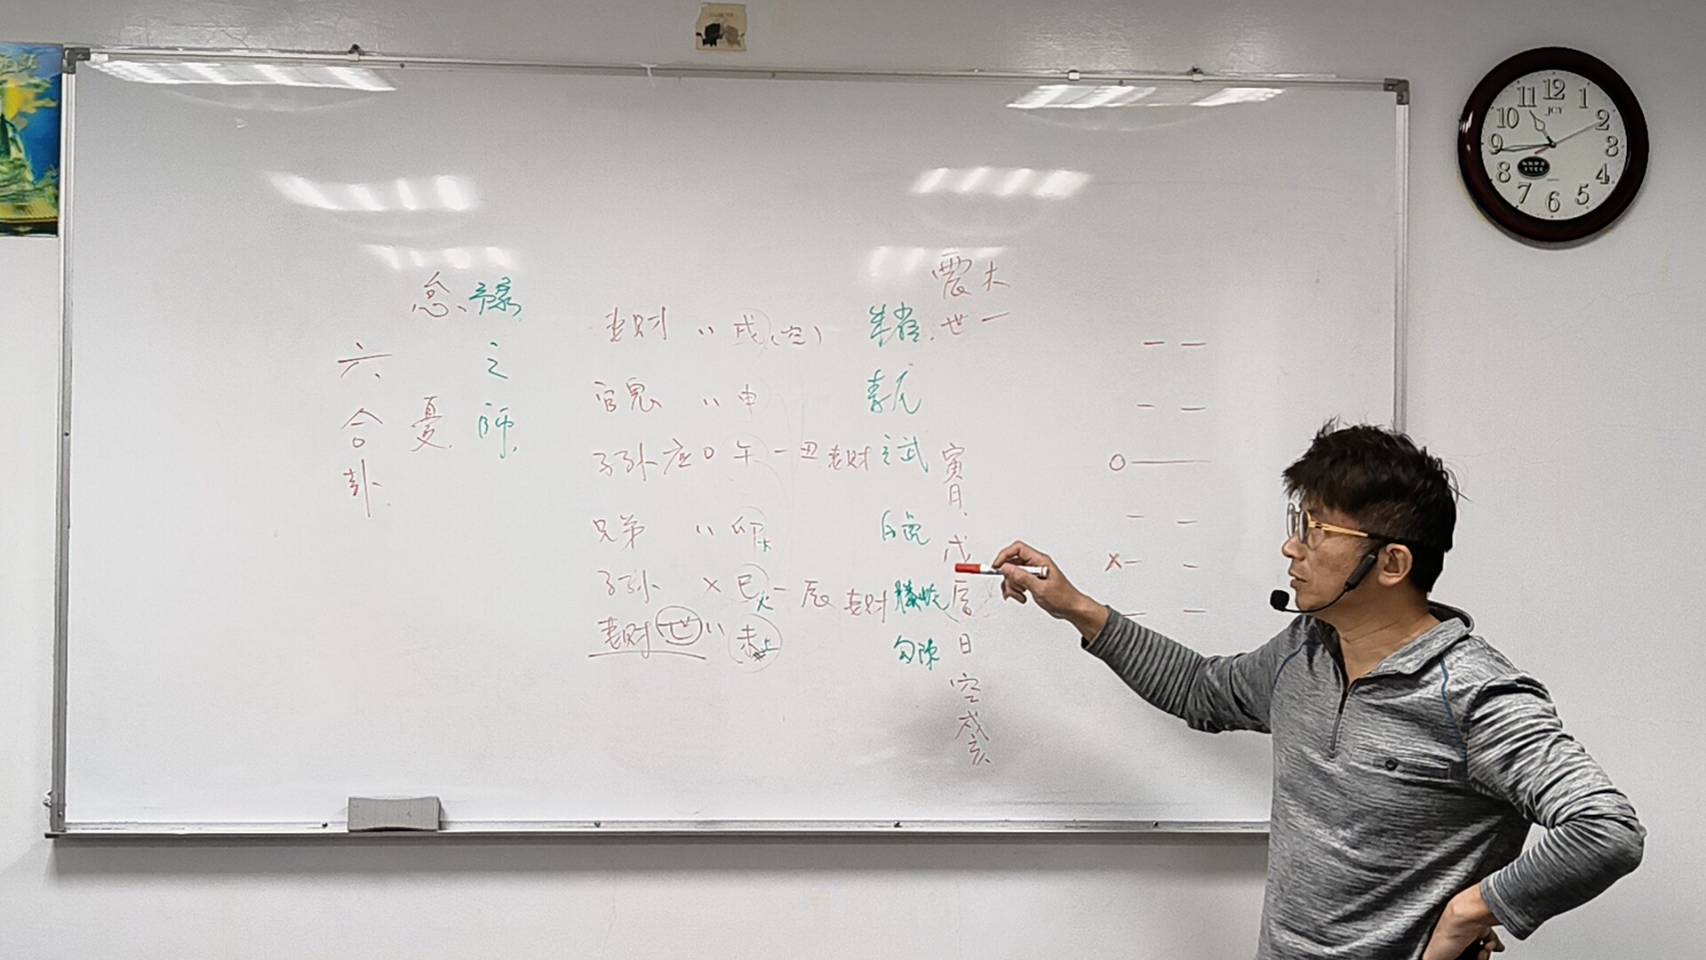 震木
世一
寅月
戊辰日
空戌亥
妻財 〃 戌(空) 朱雀
官鬼 〃 申 青龍
子孫 應 O 午 一 丑 妻財 玄武
兄弟 〃 卯木 白虎
子孫 X 巳火 一 辰 妻財 螣蛇
妻財 世 〃 未土 勾陳
豫之師
忽、憂
六合卦
12
1
2
3
4
5
6
7
8
9
10
11
JCY